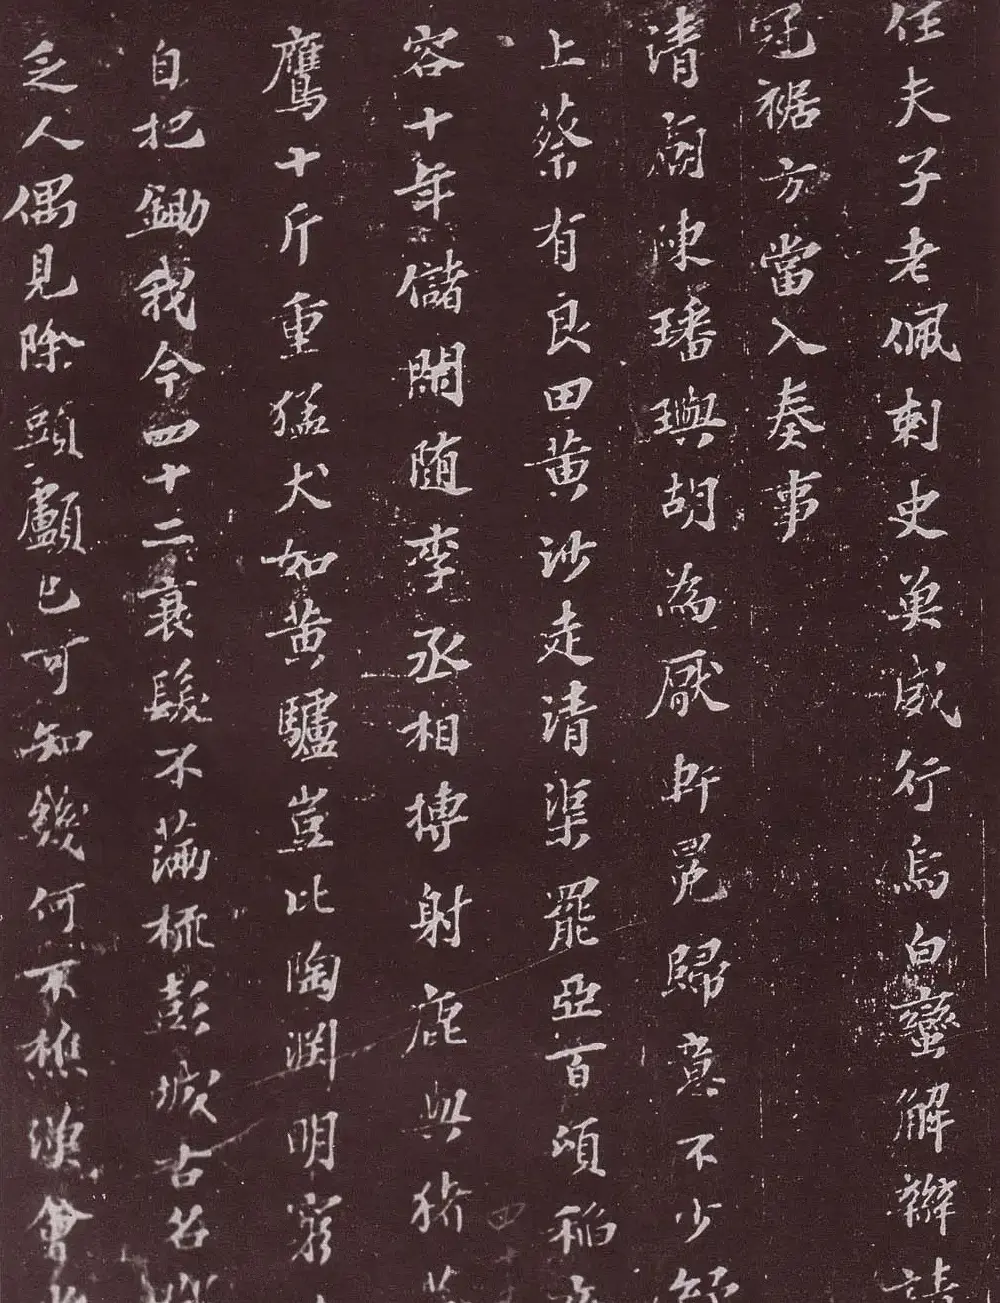 任夫子老佩刺史萬威行烏白蠻解辮請
冠裾方當入奏事
清廟陳璠璵胡為厭軒冕歸意不少紓
上蔡有良田黃沙走清渠罷亞百頃稻
容十年儲閑隨李丞相搏射鹿與猪蒼
鷹十斤重猛犬如黃驢豈比陶淵明窮
自把鋤我今四十二衰髮不滿梳彭城古名
乏人偶見除頭顱已可知幾何不樵漁會